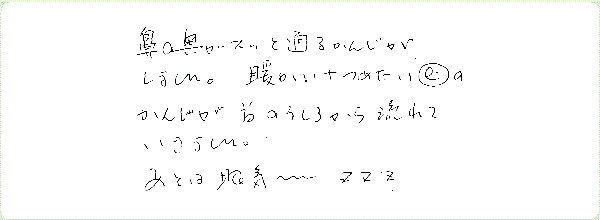 鼻の奥がスッと通るかんじが
しました。暖かい+つめたいⓔの
かんじが首のうしろから流れて
いきました。
あとは眠気〜〜 zzz